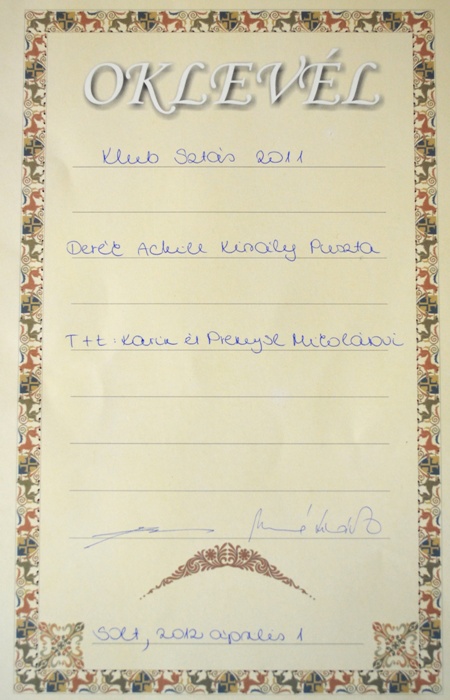 OKLEVÉL
Klub Sztás 2011
Derék Achill Király Puszta
T+t: Karin és Premysl Mikolášovi
Solt, 2012 április 1